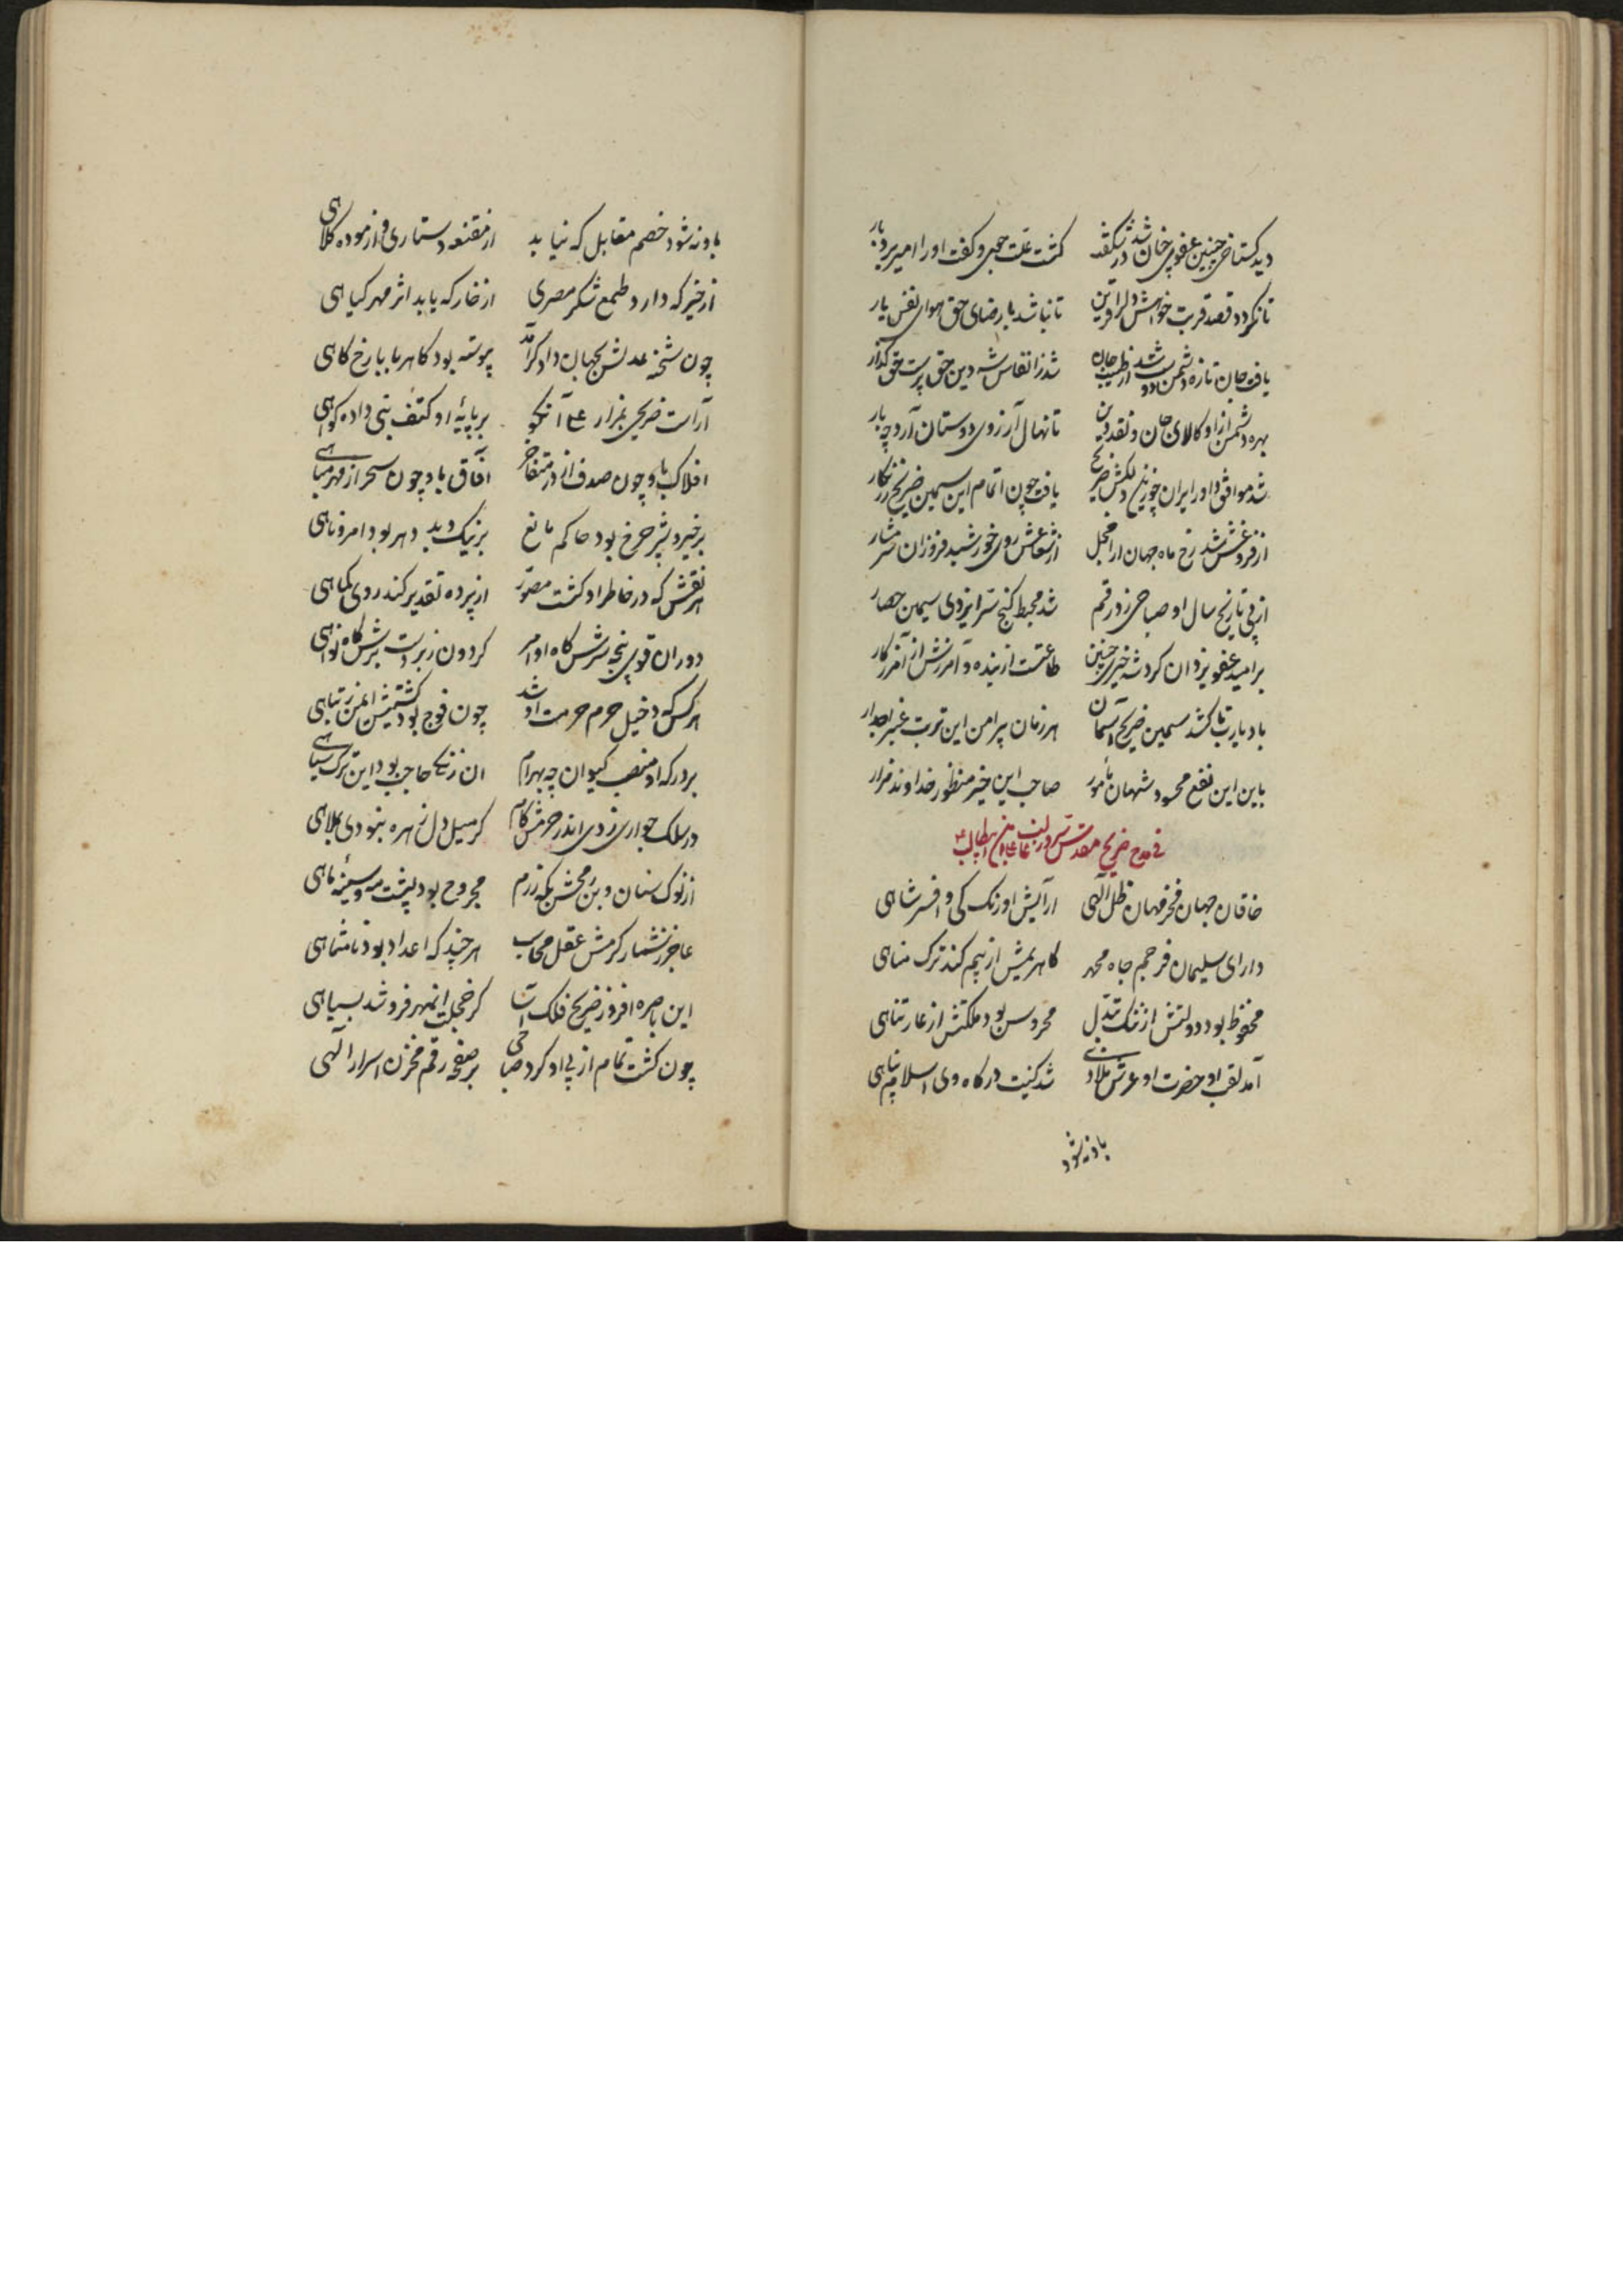 دید گستاخی چنین عفوی چنان شد در شگفت گشت علت جوی و گفت او را امیر بردبار
تا نگردد قصد قربت خواهش دل را قرین تا نباشد با رضای حق هوای نفس یار
یافت جان تازه دشمن شد از انفاس شه دین حق پرست حق گذار
بهره دشمن از او کالای جان و نقد دین تا نهال آرزوی دوستان آرد چه بار
شد موافق داور ایران چو زین دلکش ضریح یافت چون اتمام این سیمین ضریح زرنگار
از فروغش شد رخ ماه جهان آرا خجل از شعاعش روی خورشید فروزان شرمسار
از پی تاریخ سال او صباحی زد رقم شد محیط گنج سر ایزدی سیمین حصار
بر امید عفو یزدان کرد شه خیری چنین طاعتست از بنده و آمرزش از آمرزگار
باد یارب تا کشد سیمین ضریح آسمان هر زمان پیرامن این تربت غبرا مدار
باین این نفع محسود شهان صاحب این خیر منظور خداوند
در مدح ضریح مقدس
خاقان جهان فخر مهان ظل الهی آرایش اورنگ کی و افسر شاهی
دارای سلیمان فر جم جاه محمد کاهریمنش از بیم کند ترک مناهی
محفوظ بود دولتش از ننگ تبدل محروس بود مملکتش از عار تناهی
آمد لقب او حضرت او عرش ملاذی شد کنیت درگاه وی اسلام پناهی
باد نه شود
باد نه شود خصم مقابل که نیاید از مقنعه دستاری و از موده کلاهی
از خیر که دارد طمع شکر مصری از خار که یابد اثر مهر گیاهی
چون شحنه عدلش بجهان دادگر آمد پیوسته بود کاهربا با رخ کاهی
آراست ضریحی بمزار بر پایه او کتف نبی داده گواهی
افلاک باو چون صدف از در متفاخر آفاق باو چون سحر از مهر مباهی
بر خیر و شر چرخ بود حاکم مانع بر نیک و بد دهر بود آمر و ناهی
هر نقش که در خاطر او گشت مصور از پرده تقدیر کند روی کماهی
دوران قوی پنجه سرش گاه اوامر گردون زبردست برش گاه نواهی
هر کس که دخیل حرم حرمت او شد چون نوح بود کشتیش ایمن ز تباهی
بر درگه او منصب کیوان چه بهرام آن زنگی حاجب بود این ترک سپاهی
در سلک جواری زدی اندر حرمش گام گر میل دل زهره نبودی بملاهی
از نوک سنان و بن رمحش گه رزم مجروح بود پشت مه و سینه ماهی
عاجز ز شمار کرمش عقل محاسب هر چند که اعداد بود نامتناهی
این باصره افروز ضریح فلک آسا کز خجلت آن مهر فرو شد بسیاهی
چون گشت تمام از پی او کرد صباحی بر صفحه رقم مخزن اسرار الهی